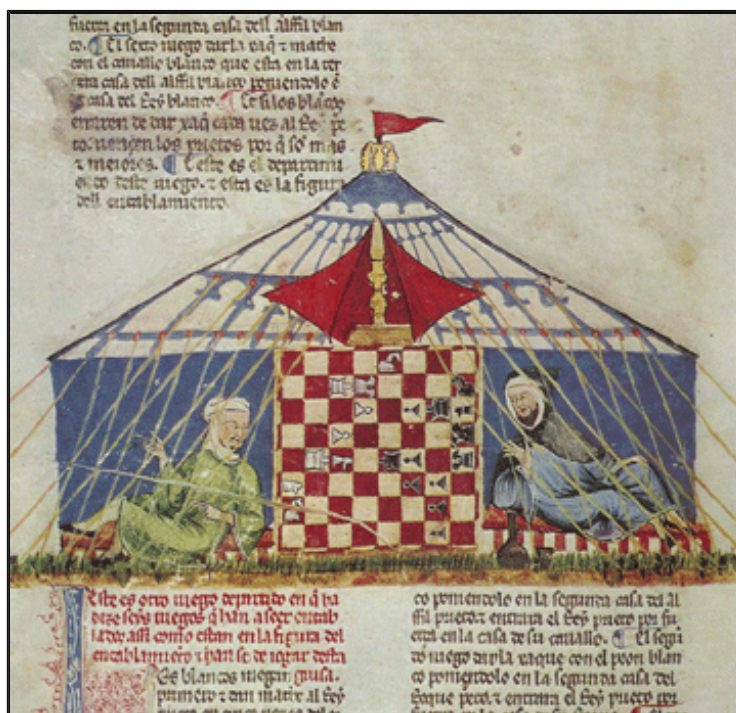 fuera en la segunda casa dell alffil blan
co. ¶ El sexto iuego dar la xaq̃ ⁊ mathe
con el cauallo blanco que esta en la ter
cera casa dell alffil blanco poniendolo ẽ
casa del Rey blanco. ¶ Et si los blãcos
de dar xaq̃ cada uez al Rey pe
to uençen los prietos por q̃ sõ mas
⁊ meiores. ¶ Ceste es el departimi
ento deste iuego. ⁊ esta es la figura
dell entablamiento.
Este es otro iuego departido en q̃ ha
seys iuegos q̃ han a seer entab
lados assi como estan en la figura del
entablamiẽto ⁊ han se de iogar desta
Os blancos iuegan guisa.
primero ⁊ dan mathe al Rey
co poniendolo en la segunda casa del Al
ffil prieto. ⁊ entrara el Rey prieto por fu
erça en la casa de su cauallo. ¶ El segũ
do iuego dar la xaque con el peon blan
co poniendolo en la segunda casa del
Roque ⁊ entrara el Rey prieto por